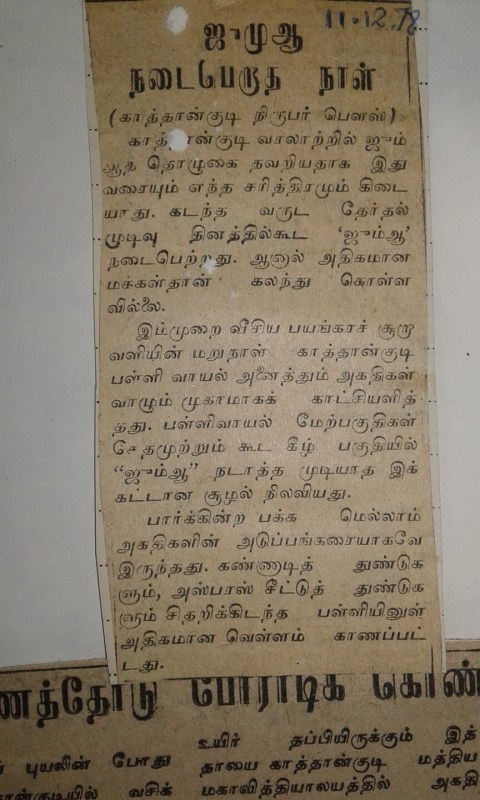 11.12.78
ஜுமுஆ
நடைபெறாத நாள்
(காத்தான்குடி நிருபர் பௌஸ்)
காத்தான்குடி வரலாற்றில் ஜும்
ஆத் தொழுகை தவறியதாக இது
வரையும் எந்த சரித்திரமும் கிடை
யாது. கடந்த வருட தேர்தல்
முடிவு தினத்தில்கூட 'ஜும்ஆ'
நடைபெற்றது. ஆனால் அதிகமான
மக்கள்தான் கலந்து கொள்ள
வில்லை.
இம்முறை வீசிய பயங்கரச் சூறா
வளியின் மறுநாள் காத்தான்குடி
பள்ளி வாயல் அனைத்தும் அகதிகள்
வாழும் முகாமாகக் காட்சியளித்
தது. பள்ளிவாயல் மேற்பகுதிகள்
சேதமுற்றும் கூட கீழ் பகுதியில்
"ஜும்ஆ" நடாத்த முடியாத இக்
கட்டான சூழல் நிலவியது.
பார்க்கின்ற பக்க மெல்லாம்
அகதிகளின் அடுப்பங்கரையாகவே
இருந்தது. கண்ணாடித் துண்டுக
ளும், அஸ்பரஸ் சீட்டுத் துண்டுக
ளும் சிதறிக்கிடந்த பள்ளியினுள்
அதிகமான வெள்ளம் காணப்பட்
டது.
ணத்தோடு போராடிக் கொண்
புயலின் போது
வசிக்
உயிர் தப்பியிருக்கும் இத்
தாயை காத்தான்குடி மத்திய
மகாவித்தியாலயத்தில் அகதி